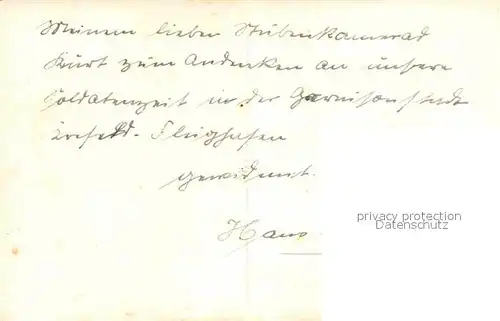 Meinem lieben Stubenkamerad
Kurt zum Andenken an unsere
Soldatenzeit in der Garnisonstadt
Krefeld-Flughafen
gewidmet.
Hans
privacy protection
Datenschutz